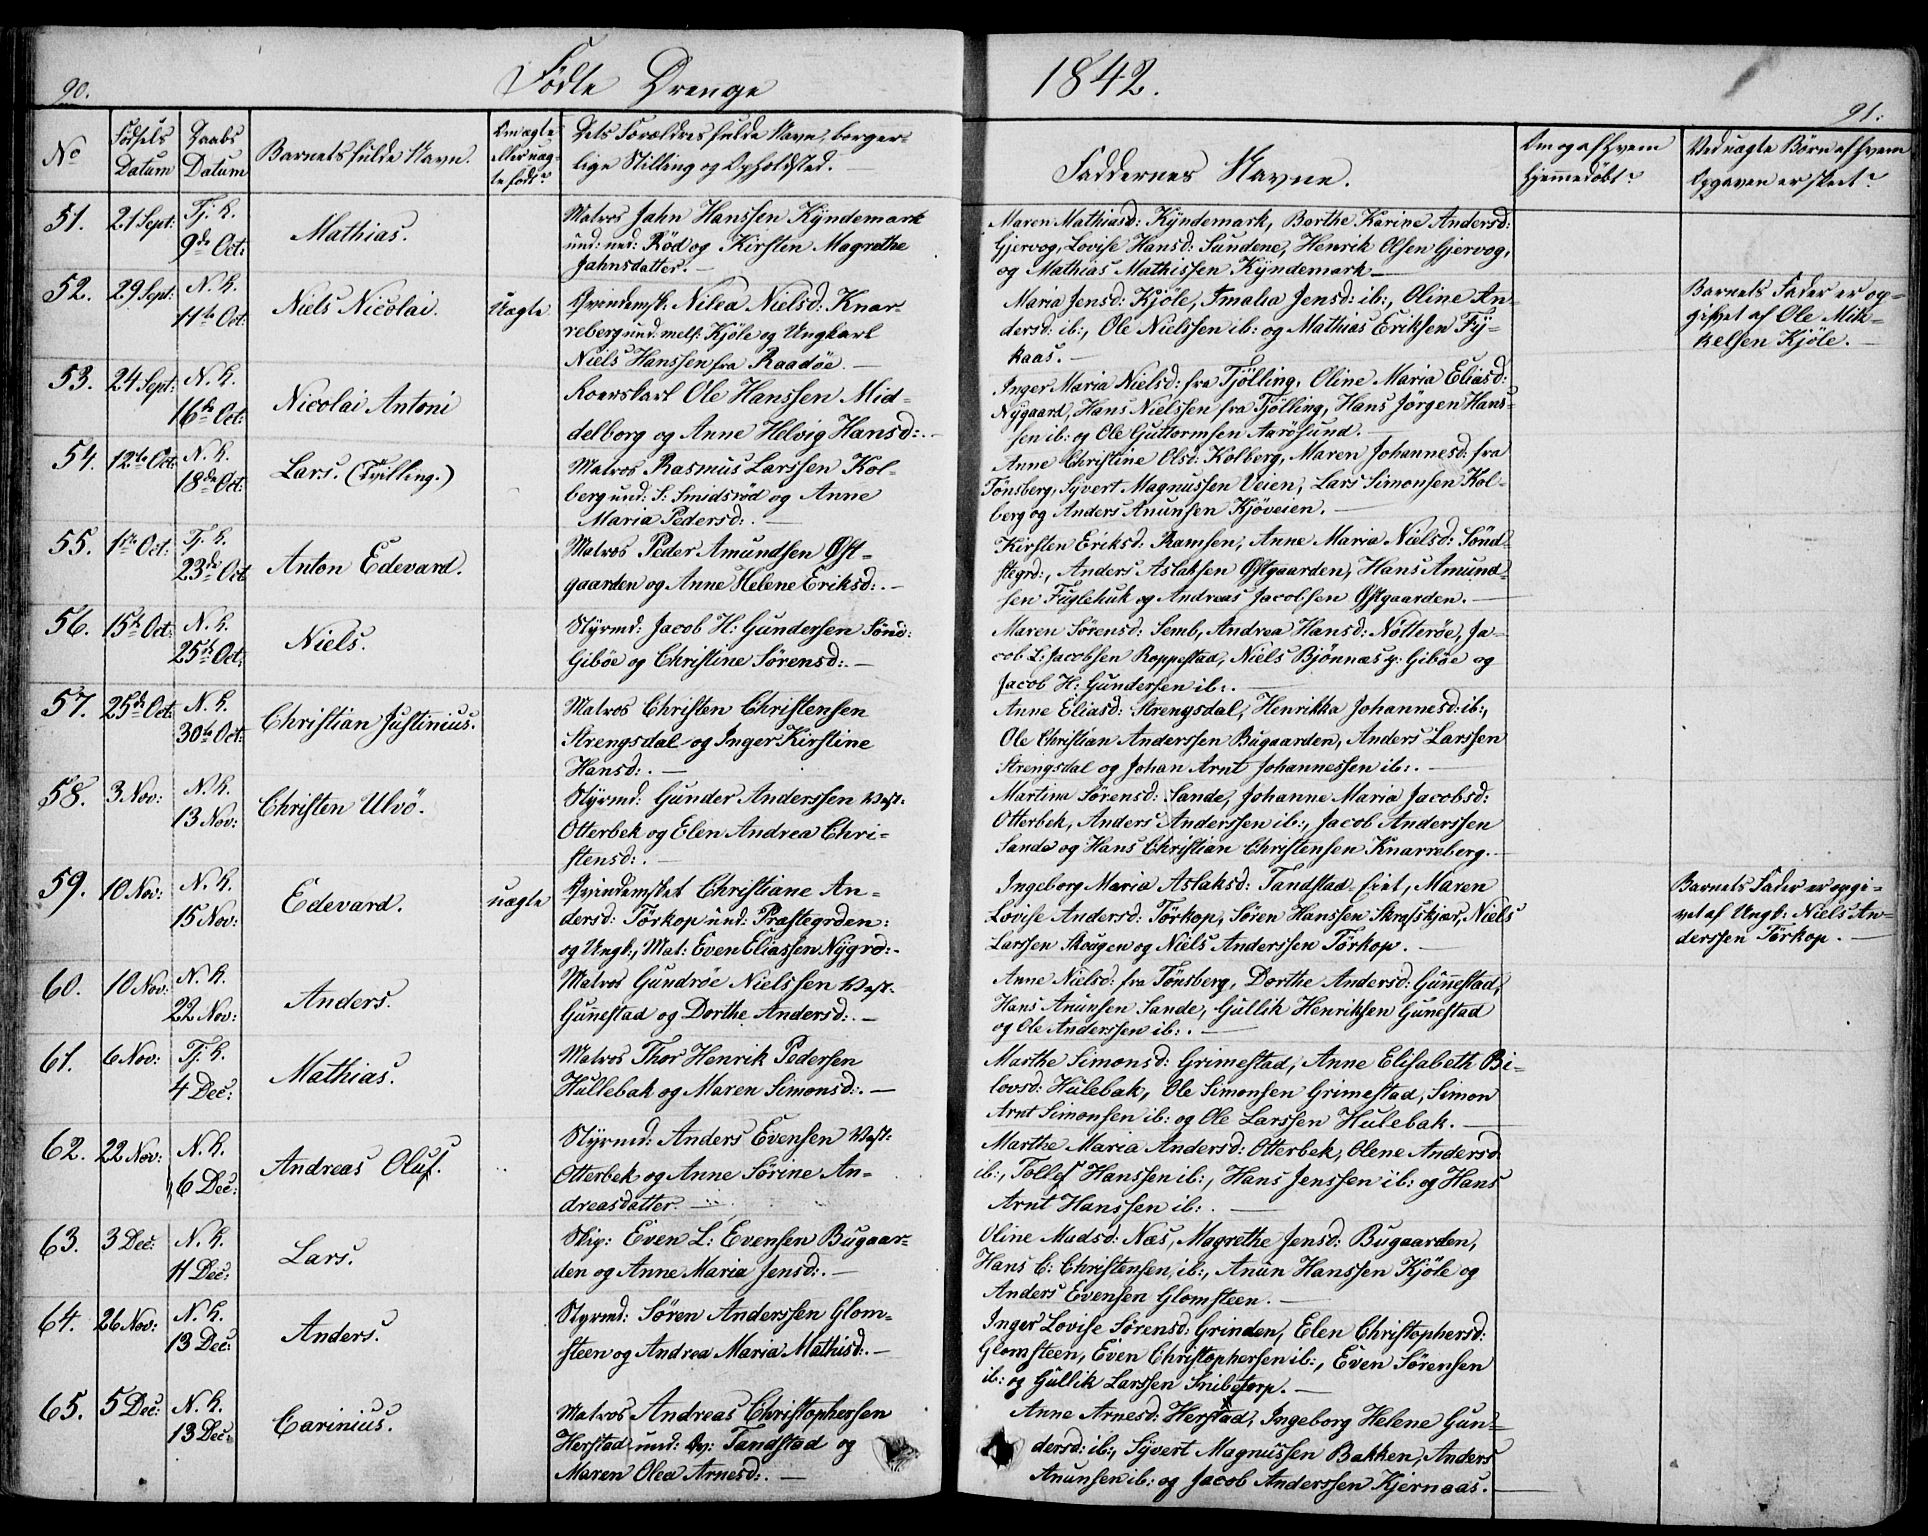 90.
Födte Drenge
1842.
91.
No
Födsels Datum
Daabs Datum
Barnets fulde Navn.
Om ægte eller uægte födt?
Dets Forældres fulde Navn, borgerlige Stilling og Opholdsted.
Faddernes Navne.
Om og af hvem hjemmedöbt?
Ved uægte Börn af hvem Opgaven er skeet?
51.
21 Sept:
Tj. K.
9de Oct:
Mathias.
Matros Jahn Hanssen Kÿndemark
und: und: Röd og Kirsten Magrethe
Jahnsdatter. —
Maren Mathiasd: Kÿndemark, Berthe Karine Andersd:
Gjervog, Lovise Hansd: Sundene, Henrik Olsen Gjervog,
og Mathias Mathissen Kÿndemark —
52.
29 Sept:
N. K.
11te Oct:
Niels Nicolai.
Uægte
Qvindemsk: Nilea Nielsd: Knar-
reberg und: mels: Kjöle og Ungkarl
Niels Hanssen fra Raadöe. —
Maria Jensd: Kjöle, Amalia Jensd: ib:, Oline An-
dersd: ib:, Ole Nielssen ib: og Mathias Eriksen Fÿ-
kaas. —
Barnets Fader er op-
givet af Ole Mik-
kelsen Kjöle. —
53.
24 Sept:
N. K.
16de Oct:
Nicolai Antoni
Roerskarl Ole Hanssen Mid-
delborg og Anne Helvig Hansd: —
Inger Maria Nielsd: fra Tjölling, Oline Maria Eliasd:
Nÿgaard, Hans Nielssen fra Tjölling, Hans Jörgen Hans-
sen ib: og Ole Guttormsen Aarösund. —
54.
12te Oct:
N. K.
18de Oct:
Lars. (Tvilling.)
Matros Rasmus Larssen Kol-
berg und: S: Smidsröd og Anne
Maria Pedersd: . —
Anne Christine Olsd: Kolberg, Maren Johannesd: fra
Tönsberg, Sÿvert Magnussen Veien, Lars Simonsen Kol-
berg og Anders Anunsen Kjöveien. —
55.
1ste Oct:
Tj. K.
23de Oct
Anton Edevard.
Matros Peder Amundsen Øst-
gaarden og Anne Helene Eriksd: . —
Kirsten Eriksd: Ramsen, Anne Maria Nielsd: Sönd-
stegrd:, Anders Aslaksen Østgaarden, Hans Amund-
sen Fuglehuk og Andreas Jacobsen Østgaarden. —
56.
15de Oct:
N. K.
25de Oct:
Niels.
Stÿrmd: Jacob H: Gundersen Sönd:
Giböe og Christine Sörensd: . —
Maren Sörensd: Semb, Andrea Hansd: Nötteröe, Ja-
cob L: Jacobsen Roppestad, Niels Bjönnæs p: Giböe og
Jacob H: Gundersen ib: . —
57.
25de Oct:
N. K.
30te Oct:
Christian Justinius.
Matros Christen Christensen
Strengsdal og Inger Kirstine
Hansd: . —
Anne Eliasd: Strengsdal, Henrikka Johannesd: ib:,
Ole Christian Anderssen Bugaarden, Anders Larssen
Strengsdal og Johan Arnt Johannessen ib: . —
58.
3 Nov:
N. K.
13 Nov:
Christen Ulvö.
Stÿrmd: Gunder Anderssen Vest:
Otterbek og Elen Andrea Chri-
stensd: . —
Martina Sörensd: Sande, Johanne Maria Jacobsd:
Otterbek, Anders Anderssen ib:, Jacob Anderssen
Sande og Hans Christian Christensen Knarreberg. —
59.
10 Nov:
N. K.
15 Nov:
Edevard.
uægte
Qvindemsket Christiane An-
dersd: Törkop und: Præstegrden:
og Ungk:, Mat: Even Eliassen Nÿgrd: —
Ingeborg Maria Aslaksd: Tandstad-Eiet, Maren
Lovise Andersd: Törkop, Sören Hanssen Skrafskjær, Niels
Larssen Skougen og Niels Anderssen Törkop. —
Barnets Fader er opgi-
vet af Ungk: Niels An-
derssen Törkop. —
60.
10 Nov:
N. K.
22 Nov:
Anders.
Matros Gundröe Nielssen Vest:
Gunestad og Dorthe Andersd: . —
Anne Nielsd: fra Tönsberg, Dorthe Andersd: Gunnestad,
Hans Anunsen Sande, Gullik Henriksen Gunestad
og Ole Anderssen ib: . —
61.
6 Nov:
Tj. K.
4 Dec:
Mathias.
Matros Thor Henrik Pedersen
Hullebak og Maren Simonsd: . —
Marthe Simonsd: Grimestad, Anne Elisabeth Bi-
lovsd: Hulebak, Ole Simonsen Grimestad, Simon
Arnt Simonsen ib: og Ole Larssen Hulebak. —
62.
22 Nov:
N. K.
6 Dec:
Andreas Oluf.
Stÿrmd: Anders Evensen Vest:
Otterbek og Anne Sörine An-
dreasdatter. —
Marthe Maria Andersd: Otterbek, Olene Andersd
ib:, Tollef Hanssen ib:, Hans Jenssen ib: og Hans
Arnt Hanssen ib: . —
63.
3 Dec:
N. K.
11 Dec:
Lars.
Skip: Even L: Evensen Bugaar-
den og Anne Maria Jensd: . —
Oline Madsd: Næs, Magrethe Jensd: Bugaarden,
Hans C: Christensen ib:, Anun Hanssen Kjöle og
Anders Evensen Glomsteen. —
64.
26 Nov:
N. K.
13 Dec:
Anders.
Stÿrmd: Sören Anderssen Glom-
steen og Andrea Maria Mathisd: . —
Inger Lovise Sörensd: Grinden, Elen Christophersd:
Glomsteen, Even Christophersen ib:, Even Sörensen
ib: og Gullik Larssen Snibetorp. —
65.
5 Dec:
N. K.
13 Dec:
Carinius.
Matros Andreas Christophersen
Herstad und: Qv: Tandstad og
Maren Olea Arnesd: . —
Anne Arnesd: Herstad, Ingeborg Helene Gun-
dersd: ib:, Sÿvert Magnussen Bakken, Anders
Anunsen ib: og Jacob Anderssen Kjernaas. —